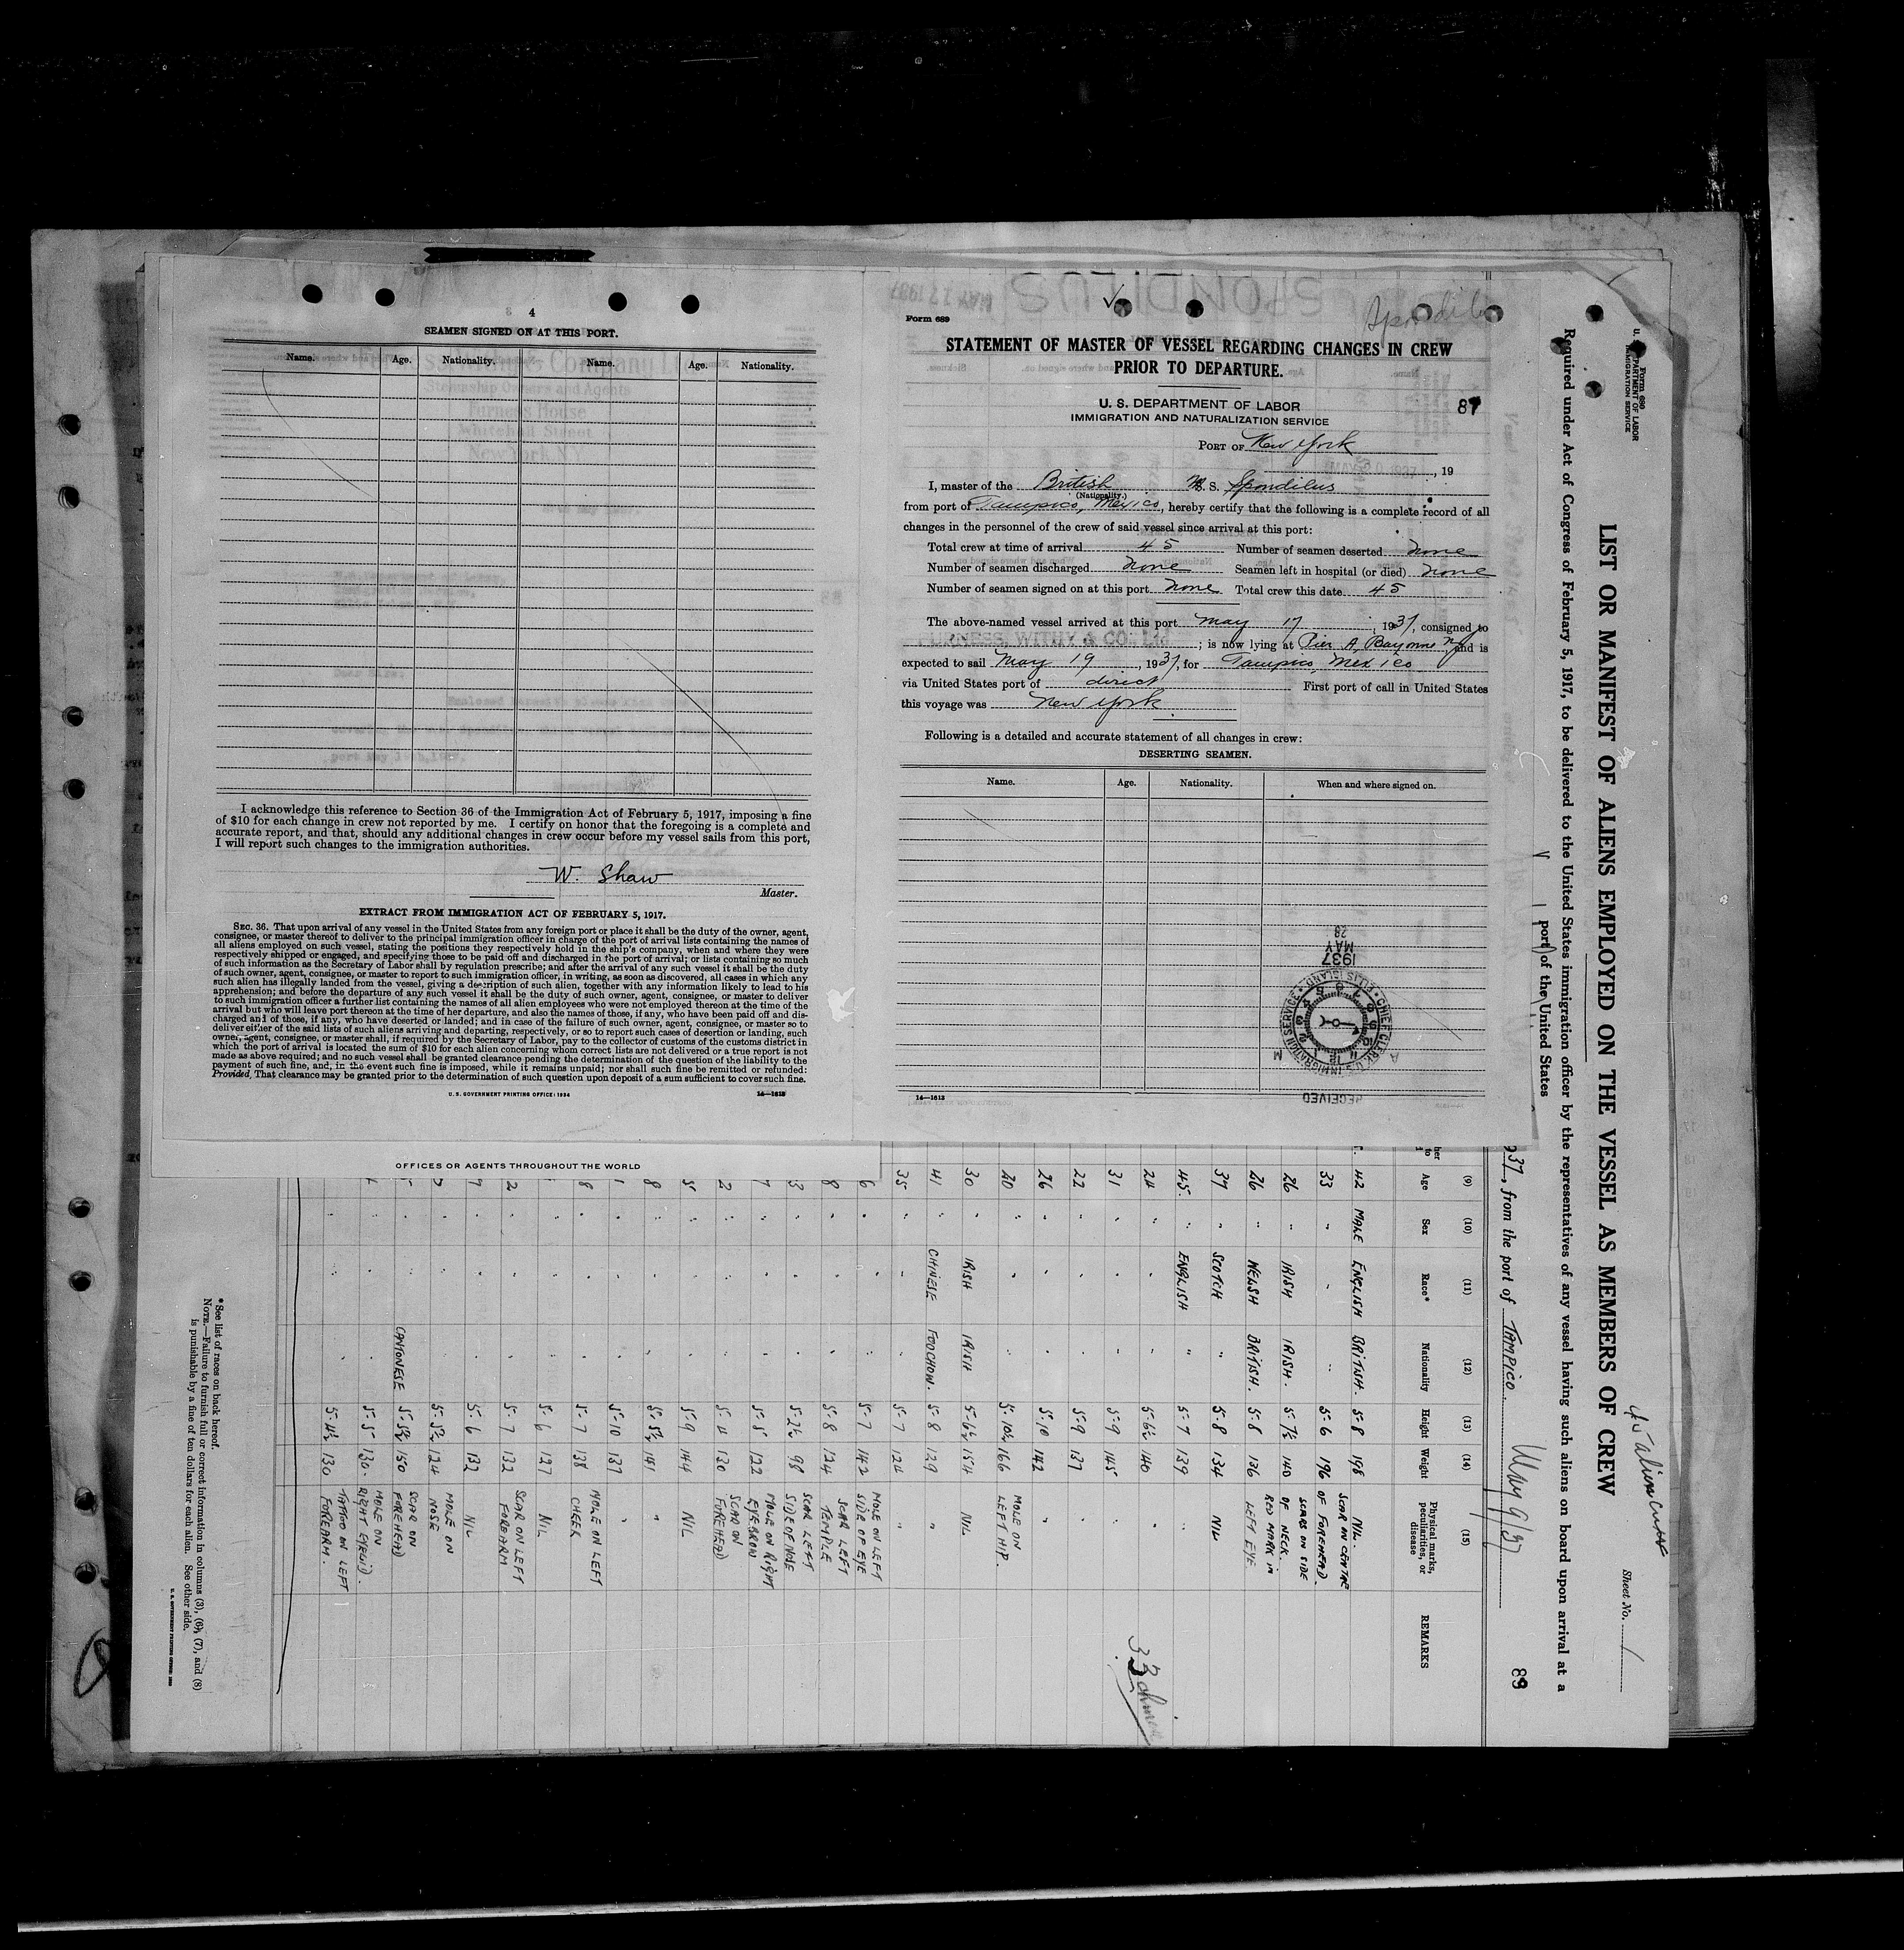 4
SEAMEN SIGNED ON AT THIS PORT.
Name. Age. Nationality. Name. Age. Nationality.
I acknowledge this reference to Section 36 of the Immigration Act of February 5, 1917, imposing a fine
of $10 for each change in crew not reported by me. I certify on honor that the foregoing is a complete and
accurate report, and that, should any additional changes in crew occur before my vessel sails from this port,
I will report such changes to the immigration authorities.
W. Shaw
Master.
EXTRACT FROM IMMIGRATION ACT OF FEBRUARY 5, 1917.
SEC. 36. That upon arrival of any vessel in the United States from any foreign port or place it shall be the duty of the owner, agent,
consignee, or master thereof to deliver to the principal immigration officer in charge of the port of arrival lists containing the names of
all aliens employed on such vessel, stating the positions they respectively hold in the ship's company, when and where they were
respectively shipped or engaged, and specifying those to be paid off and discharged in the port of arrival; or lists containing so much
of such information as the Secretary of Labor shall by regulation prescribe; and after the arrival of any such vessel it shall be the duty
of such owner, agent, consignee, or master to report to such immigration officer, in writing, as soon as discovered, all cases in which any
such alien has illegally landed from the vessel, giving a description of such alien, together with any information likely to lead to his
apprehension; and before the departure of any such vessel it shall be the duty of such owner, agent, consignee, or master to deliver
to such immigration officer a further list containing the names of all alien employees who were not employed thereon at the time of the
arrival but who will leave port thereon at the time of her departure, and also the names of those, if any, who have been paid off and dis-
charged and of those, if any, who have deserted or landed; and in case of the failure of such owner, agent, consignee, or master so to
deliver either of the said lists of such aliens arriving and departing, respectively, or so to report such cases of desertion or landing, such
owner, agent, consignee, or master shall, if required by the Secretary of Labor, pay to the collector of customs of the customs district in
which the port of arrival is located the sum of $10 for each alien concerning whom correct lists are not delivered or a true report is not
made as above required; and no such vessel shall be granted clearance pending the determination of the question of the liability to the
payment of such fine, and, in the event such fine is imposed, while it remains unpaid; nor shall such fine be remitted or refunded:
Provided, That clearance may be granted prior to the determination of such question upon deposit of a sum sufficient to cover such fine.
U. S. GOVERNMENT PRINTING OFFICE: 1934 14—1613
OFFICES OR AGENTS THROUGHOUT THE WORLD
Form 689
Spondilus
STATEMENT OF MASTER OF VESSEL REGARDING CHANGES IN CREW
PRIOR TO DEPARTURE.
U. S. DEPARTMENT OF LABOR
IMMIGRATION AND NATURALIZATION SERVICE
87
PORT OF New York
, 19
I, master of the British M. S. Spondilus
(Nationality.)
from port of Tampico, Mexico, hereby certify that the following is a complete record of all
changes in the personnel of the crew of said vessel since arrival at this port:
Total crew at time of arrival 45 Number of seamen deserted none
Number of seamen discharged none Seamen left in hospital (or died) none
Number of seamen signed on at this port none Total crew this date 45
The above-named vessel arrived at this port May 17, 1937, consigned to
FURNESS, WITHY & CO. Ltd.; is now lying at Pier A, Bayonne NJ and is
expected to sail May 19, 1937, for Tampico, Mexico
via United States port of direct First port of call in United States
this voyage was New York
Following is a detailed and accurate statement of all changes in crew:
DESERTING SEAMEN.
Name. Age. Nationality. When and where signed on.
RECEIVED
CHIEF CLERK U.S. IMMIGRATION SERVICE ELLIS ISLAND
A M
1937
MAY
28
14—1613
Form 680
U. S. DEPARTMENT OF LABOR
IMMIGRATION SERVICE
Sheet No. 1
LIST OR MANIFEST OF ALIENS EMPLOYED ON THE VESSEL AS MEMBERS OF CREW
Required under Act of Congress of February 5, 1917, to be delivered to the United States immigration officer by the representatives of any vessel having such aliens on board upon arrival at a
port of the United States
37, from the port of TAMPICO
89
(9) (10) (11) (12) (13) (14) (15)
Age Sex Race* Nationality Height Weight Physical marks, peculiarities, or disease REMARKS
42 MALE ENGLISH BRITISH. 5-8 198 NIL.
33 " " " 5-6 196 SCAR ON CENTRE OF FOREHEAD.
26 " IRISH IRISH. 5-7½ 140 SCARS ON SIDE OF NECK.
26 " WELSH BRITISH. 5-8 136 RED MARK IN LEFT EYE
37 " SCOTCH " 5-8 134 NIL
45. " ENGLISH " 5-7 139 "
24 " " " 5-6½ 140 "
31 " " " 5-9 145 "
22 " " " 5-9 137 "
26 " " " 5-10 142 "
20 " " " 5-10½ 166 MOLE ON LEFT HIP.
30 " IRISH IRISH 5-6½ 154 NIL
41 " CHINESE FOOCHOW. 5-8 129 "
35 " " " 5-7 124 "
6 " " " 5-7 142 MOLE ON LEFT SIDE OF EYE
8 " " " 5-8 124 SCAR LEFT TEMPLE
3 " " " 5-2½ 98 SCAR LEFT SIDE OF NOSE
7 " " " 5-5 122 MOLE ON RIGHT EYEBROW
2 " " " 5-4 130 SCAR ON FOREHEAD
5 " " " 5-9 144 NIL
8 " " " 5-5½ 141 "
1 " " " 5-10 137 "
8 " " " 5-7 138 MOLE ON LEFT CHEEK
" " " 5-6 127 NIL
2 " " " 5-7 132 SCAR ON LEFT FOREARM
9 " " " 5-6 132 NIL
" " " 5-5½ 124 MOLE ON NOSE
" " CANTONESE 5-5½ 150 SCAR ON FOREHEAD
" " " 5-5 130. MOLE ON RIGHT EYELID.
" " " 5-4½ 130 TATTOO ON LEFT FOREARM.
*See list of races on back hereof.
NOTE.—Failure to furnish full or correct information in columns (3), (6), (7), and (8)
is punishable by a fine of ten dollars for each alien. See other side.